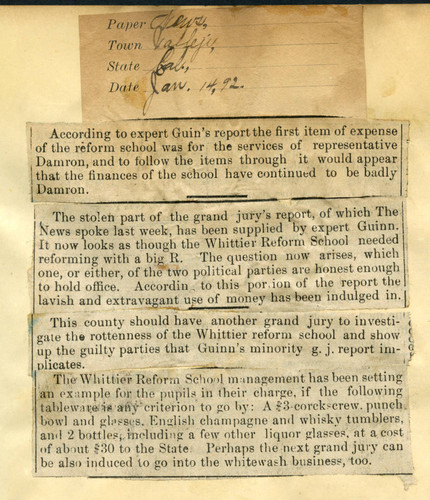 Paper News,
Town Vallejo,
State Cal,
Date Jan. 14, 92.
According to expert Guin's report the first item of expense
of the reform school was for the services of representative
Damron, and to follow the items through it would appear
that the finances of the school have continued to be badly
Damron.
The stolen part of the grand jury's report, of which The
News spoke last week, has been supplied by expert Guinn.
It now looks as though the Whittier Reform School needed
reforming with a big R. The question now arises, which
one, or either, of the two political parties are honest enough
to hold office. Accordin to this portion of the report the
lavish and extravagant use of money has been indulged in.
This county should have another grand jury to investi-
gate the rottenness of the Whittier reform school and show
up the guilty parties that Guinn's minority g. j. report im-
plicates.
The Whittier Reform School management has been setting
an example for the pupils in their charge, if the following
tableware is any criterion to go by: A $3 corckscrew, punch
bowl and glasses, English champagne and whisky tumblers,
and 2 bottles, including a few other liquor glasses, at a cost
of about $30 to the State Perhaps the next grand jury can
be also induced to go into the whitewash business, too.